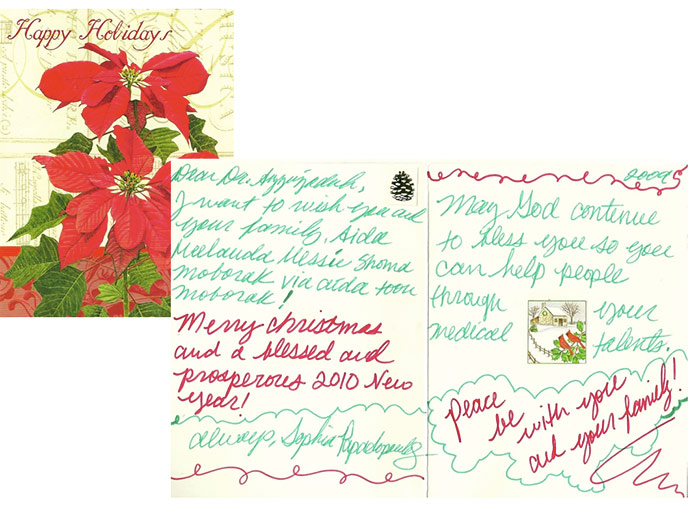 Happy Holidays
Dear Dr. Azzizadah,
I want to wish you and
your family, Aida
Meelauda Messie Shoma
Moborak via aida toon
Moborak!
Merry Christmas
and a blessed and
prosperous 2010 New
Year!
always, Sophia Papadopoulos
2009
May God continue
to bless you so you
can help people
through your
medical talents.
Peace
be with you
and your family!